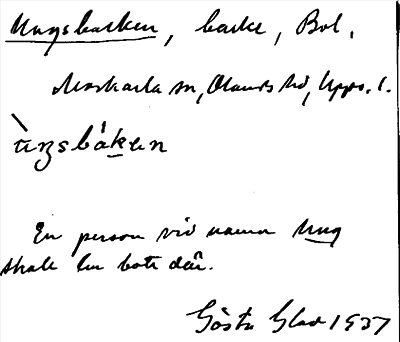 Ungsbacken, backe, Bol,
Morkarla sn, Olands hd, Upps. l.
En person vid namn Ung
skall ha bott där.
Gösta Glad 1937